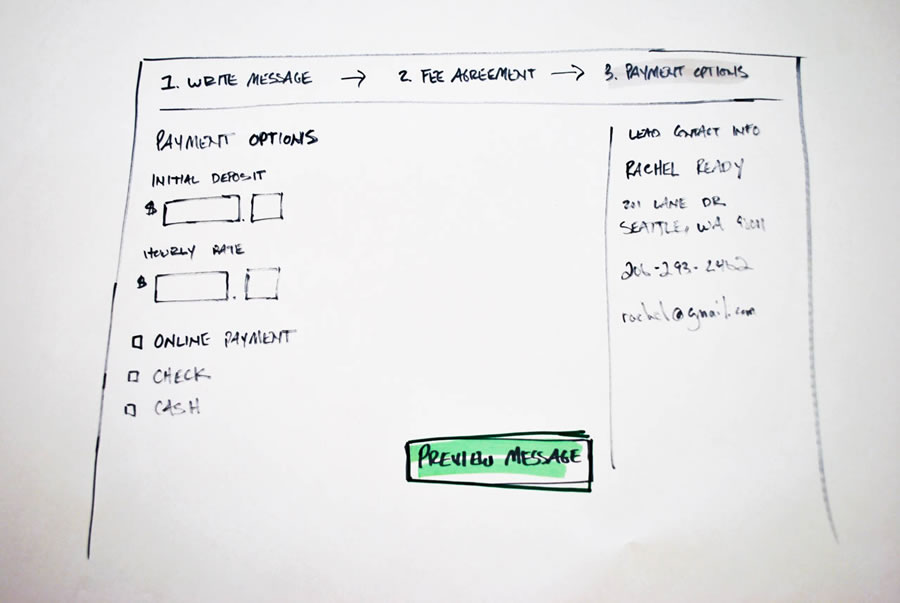 1. WRITE MESSAGE → 2. FEE AGREEMENT → 3. PAYMENT OPTIONS
PAYMENT OPTIONS
INITIAL DEPOSIT
$ .
HOURLY RATE
$ .
ONLINE PAYMENT
CHECK
CASH
PREVIEW MESSAGE
LEAD CONTACT INFO
RACHEL READY
201 LANE DR
SEATTLE, WA
206-293-2462
rachel@gmail.com